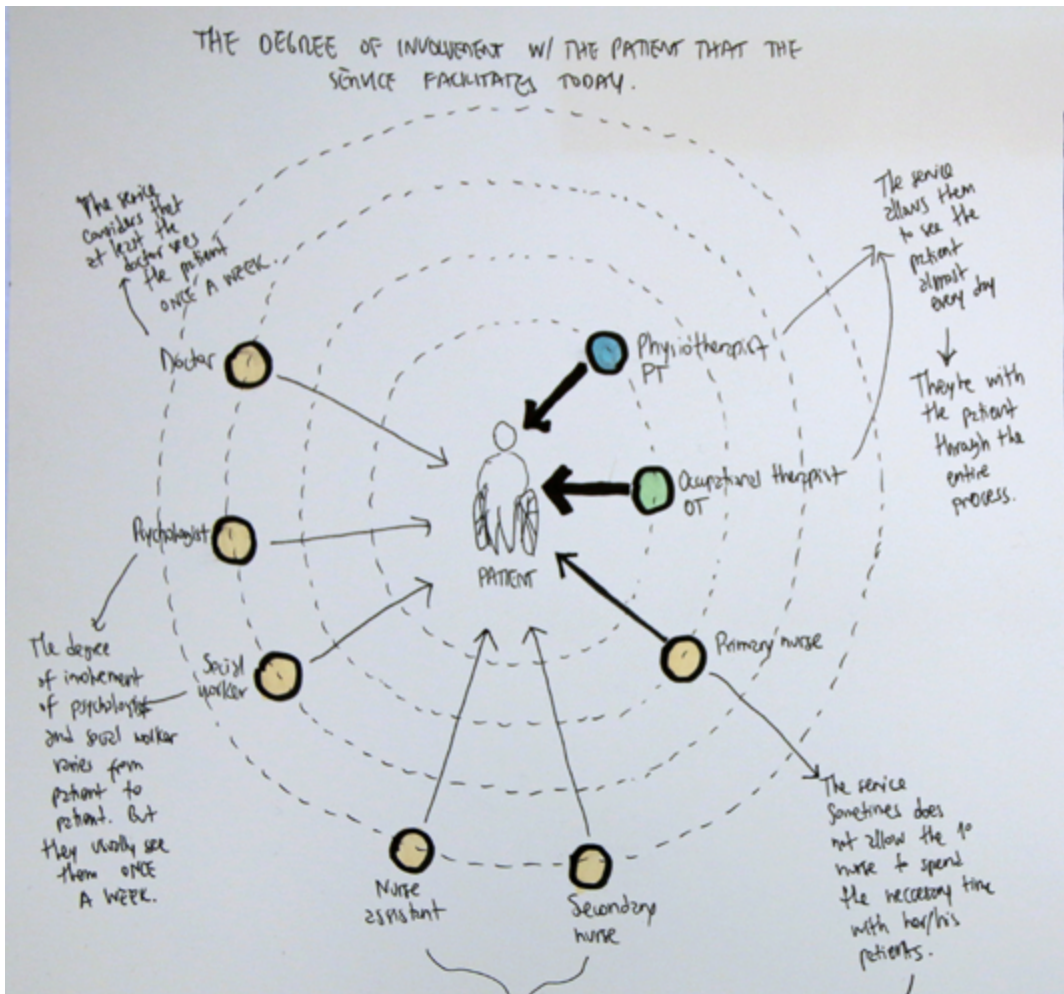 THE DEGREE OF INVOLVEMENT W/ THE PATIENT THAT THE
SERVICE FACILITATES TODAY.
The service
considers that
at least the
doctor sees
the patient
ONCE A WEEK.
Doctor
Psychologist
Social
worker
The degree
of involvement
of psychologist
and social worker
varies from
patient to
patient. But
they usually see
them ONCE
A WEEK.
Physiotherapist
PT
Ocupational therapist
OT
PATIENT
The service
allows them
to see the
patient
almost
every day
They're with
the patient
through the
entire
process.
Primary nurse
Nurse
assistant
Secondary
nurse
The service
sometimes does
not allow the 1º
nurse to spend
the necessary time
with her/his
patients.